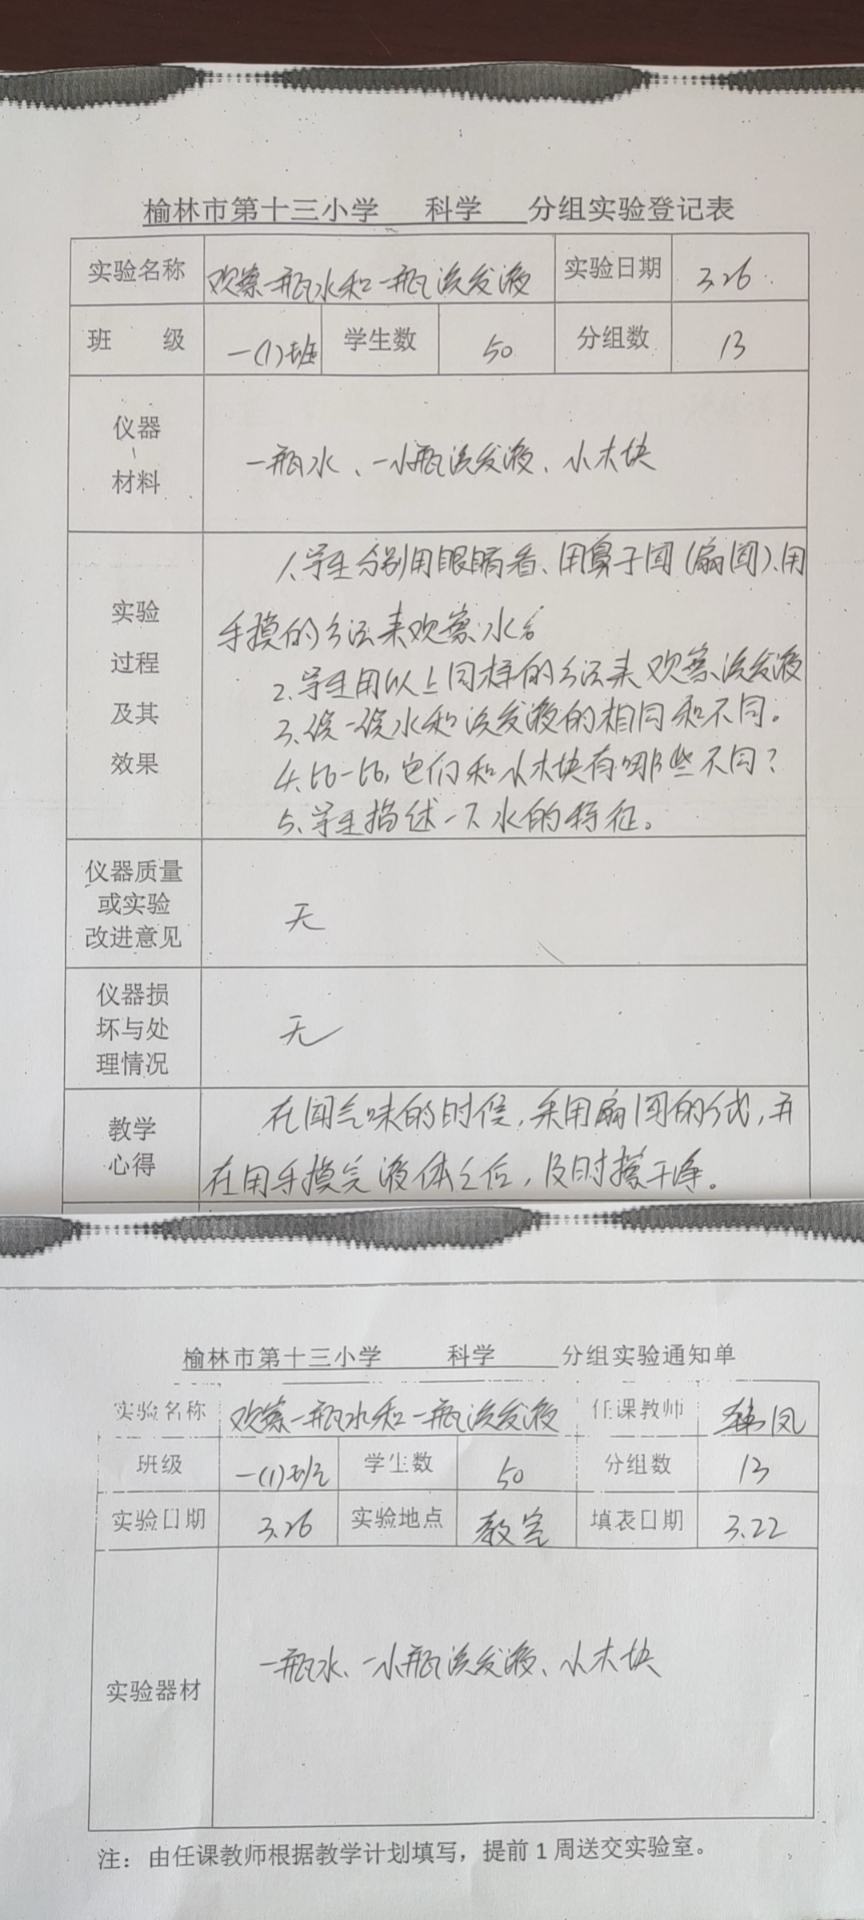 榆林市第十三小学 科学 分组实验登记表
实验名称 观察一瓶水和一瓶洗发液 实验日期 3.26
班 级 一(1)班 学生数 50 分组数 13
仪器、材料 一瓶水、一小瓶洗发液、小木块
实验过程及其效果
1.学生分别用眼睛看、用鼻子闻(扇闻)、用
手摸的方法来观察水。
2.学生用以上同样的方法来观察洗发液
3.说一说水和洗发液的相同和不同。
4.比一比,它们和小木块有哪些不同?
5.学生描述一下水的特征。
仪器质量或实验改进意见 无
仪器损坏与处理情况 无
教学心得
在闻气味的时候,采用扇闻的方式,并
在用手摸完液体之后,及时擦干净。
榆林市第十三小学 科学 分组实验通知单
实验名称 观察一瓶水和一瓶洗发液 任课教师 韩凤
班级 一(1)班 学生数 50 分组数 13
实验日期 3.26 实验地点 教室 填表日期 3.22
实验器材 一瓶水、一小瓶洗发液、小木块
注:由任课教师根据教学计划填写,提前1周送交实验室。